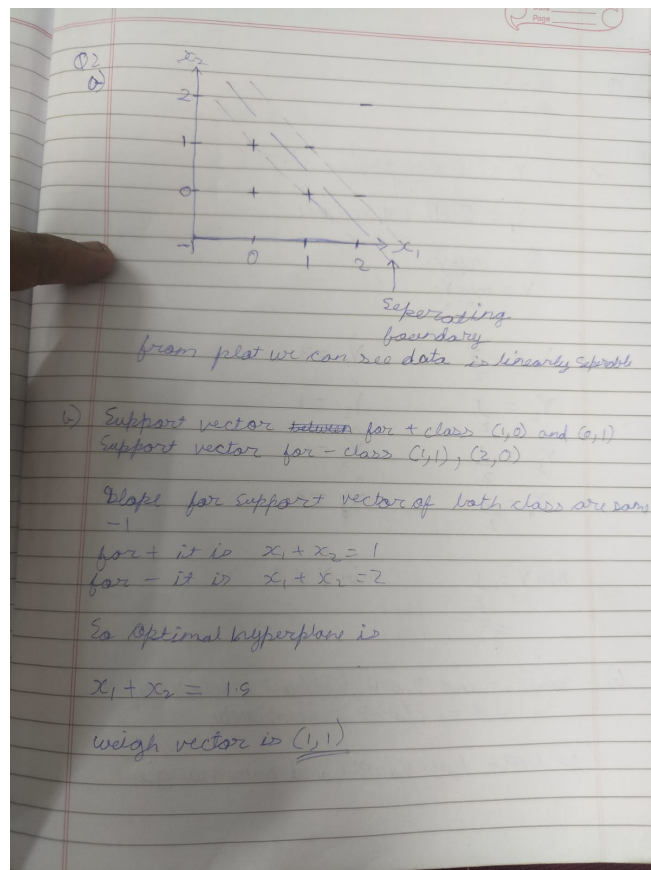 Page
Q2
a)
x2
2
1
0
-1
0 1 2
x1
Seperating
boundary
from plot we can see data is linearly seprable
b) Support vector between for + class (1,0) and (0,1)
Support vector for - class (1,1), (2,0)
Slope for support vector of both class are same
-1
for + it is x1 + x2 = 1
for - it is x1 + x2 = 2
So optimal hyperplane is
x1 + x2 = 1.5
weigh vector is (1,1)